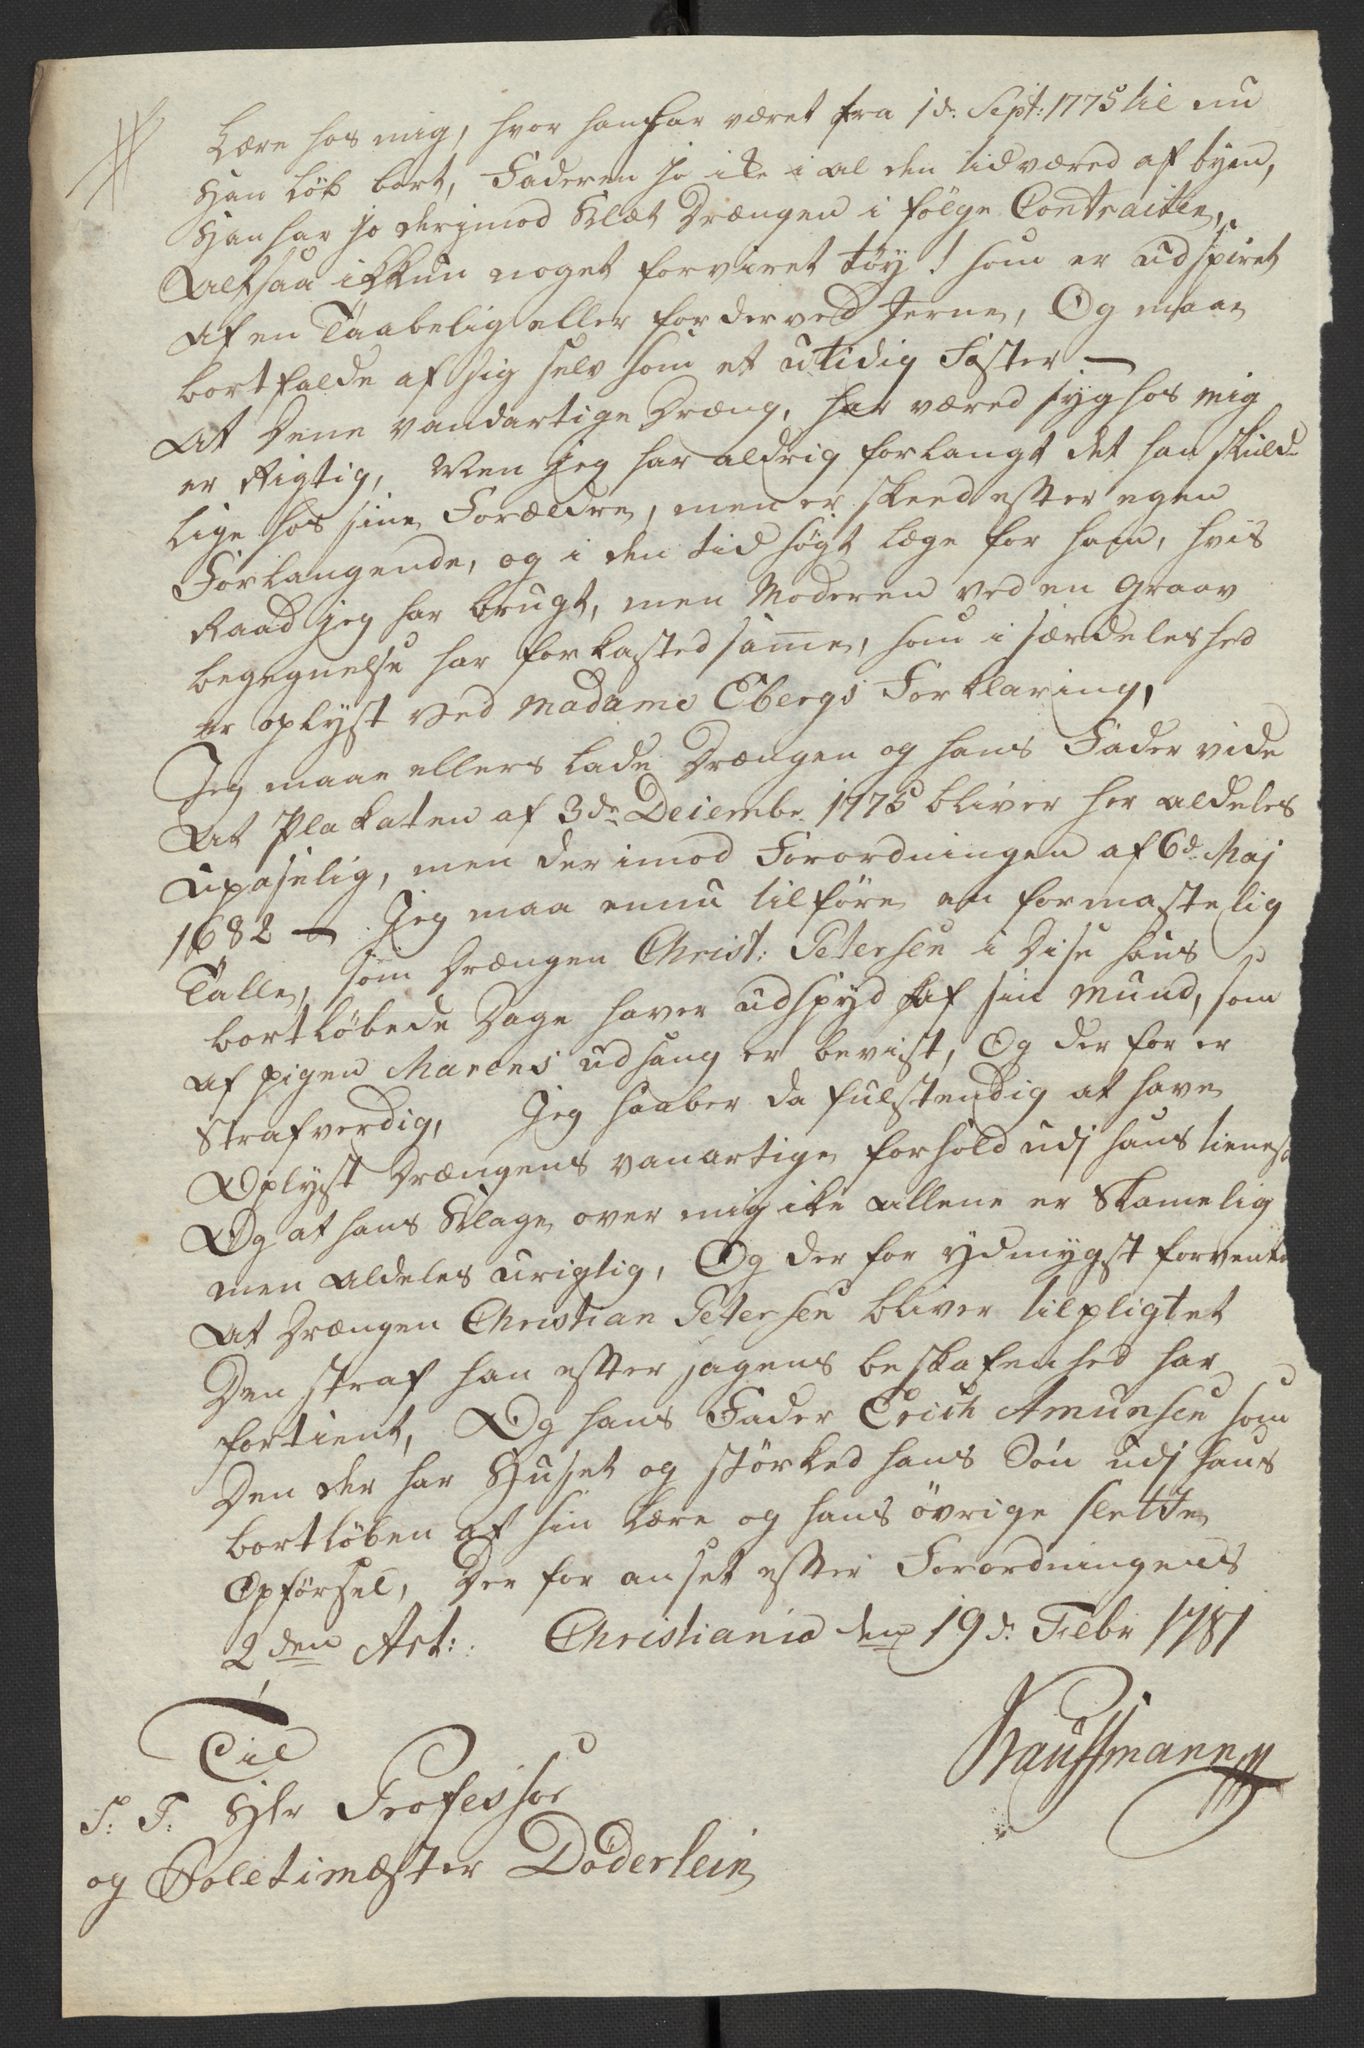 Lære hos mig, hvor han har været fra 1d. Sept: 1775 til nu
han løb bort, Faderen jo ike i al den tid været af byen,
han har jo derjmod Klæt Drængen i følge Contracten,
Altsaa ikkun noget forviret tøy! som er udspiret
af en Taabelig eller forderved Jerne, Og maae
bortfalde af sig selv som et utidig Foster —
At Dene vanartige Dræng, har været syg hos mig
er Rigtig, Men jeg har aldrig forlangt det han skuld-
lige hos sine Forældre, men er skeed efter egen
Forlangende, og i den tid søgt læge for ham, hvis
Raad jeg har brugt, men Moderen ved en graav
begegnelse har forkasted same, som i særdeleshed
er oplyst ved Madame Ebergs Forklaring,
Jeg maae ellers lade Drængen og hans Fader vide
At Plakaten af 3de Decembr. 1775 bliver her aldeles
upaselig, men derimod Forordningen af 6d. Maj
1682 — Jeg maa ennu tilføre en formastelig
Talle, som Drængen Christ: Petersen i Dise hans
bortløbede Dage haver udspyd af sin Mund, som
af pigen Marens udsang er bevist, Og der for er
Strafverdig, Jeg haaber da fulstendig at have
Oplyst Drængens vanartige forhold udj hans tieneste
Og at hans Klage over mig ike allene er Skamelig
men aldeles urigtig, Og der for ydmygst forvente
At Drængen Christian Petersen bliver tilpligtet
Den straf han efter sagens beskafenhed har
fortient, Og hans Fader Erich Amunsen som
Den der har Huset og størked hans Søn udj hans
bortløben af sin lære og hans øvrige slette
Opførsel, Der for anset efter Forordningens
2den Art: Christiania den 19d. Febr 1781
Kauffmann
Til
S: T: Hr Professor
og Poletimester Döderlein